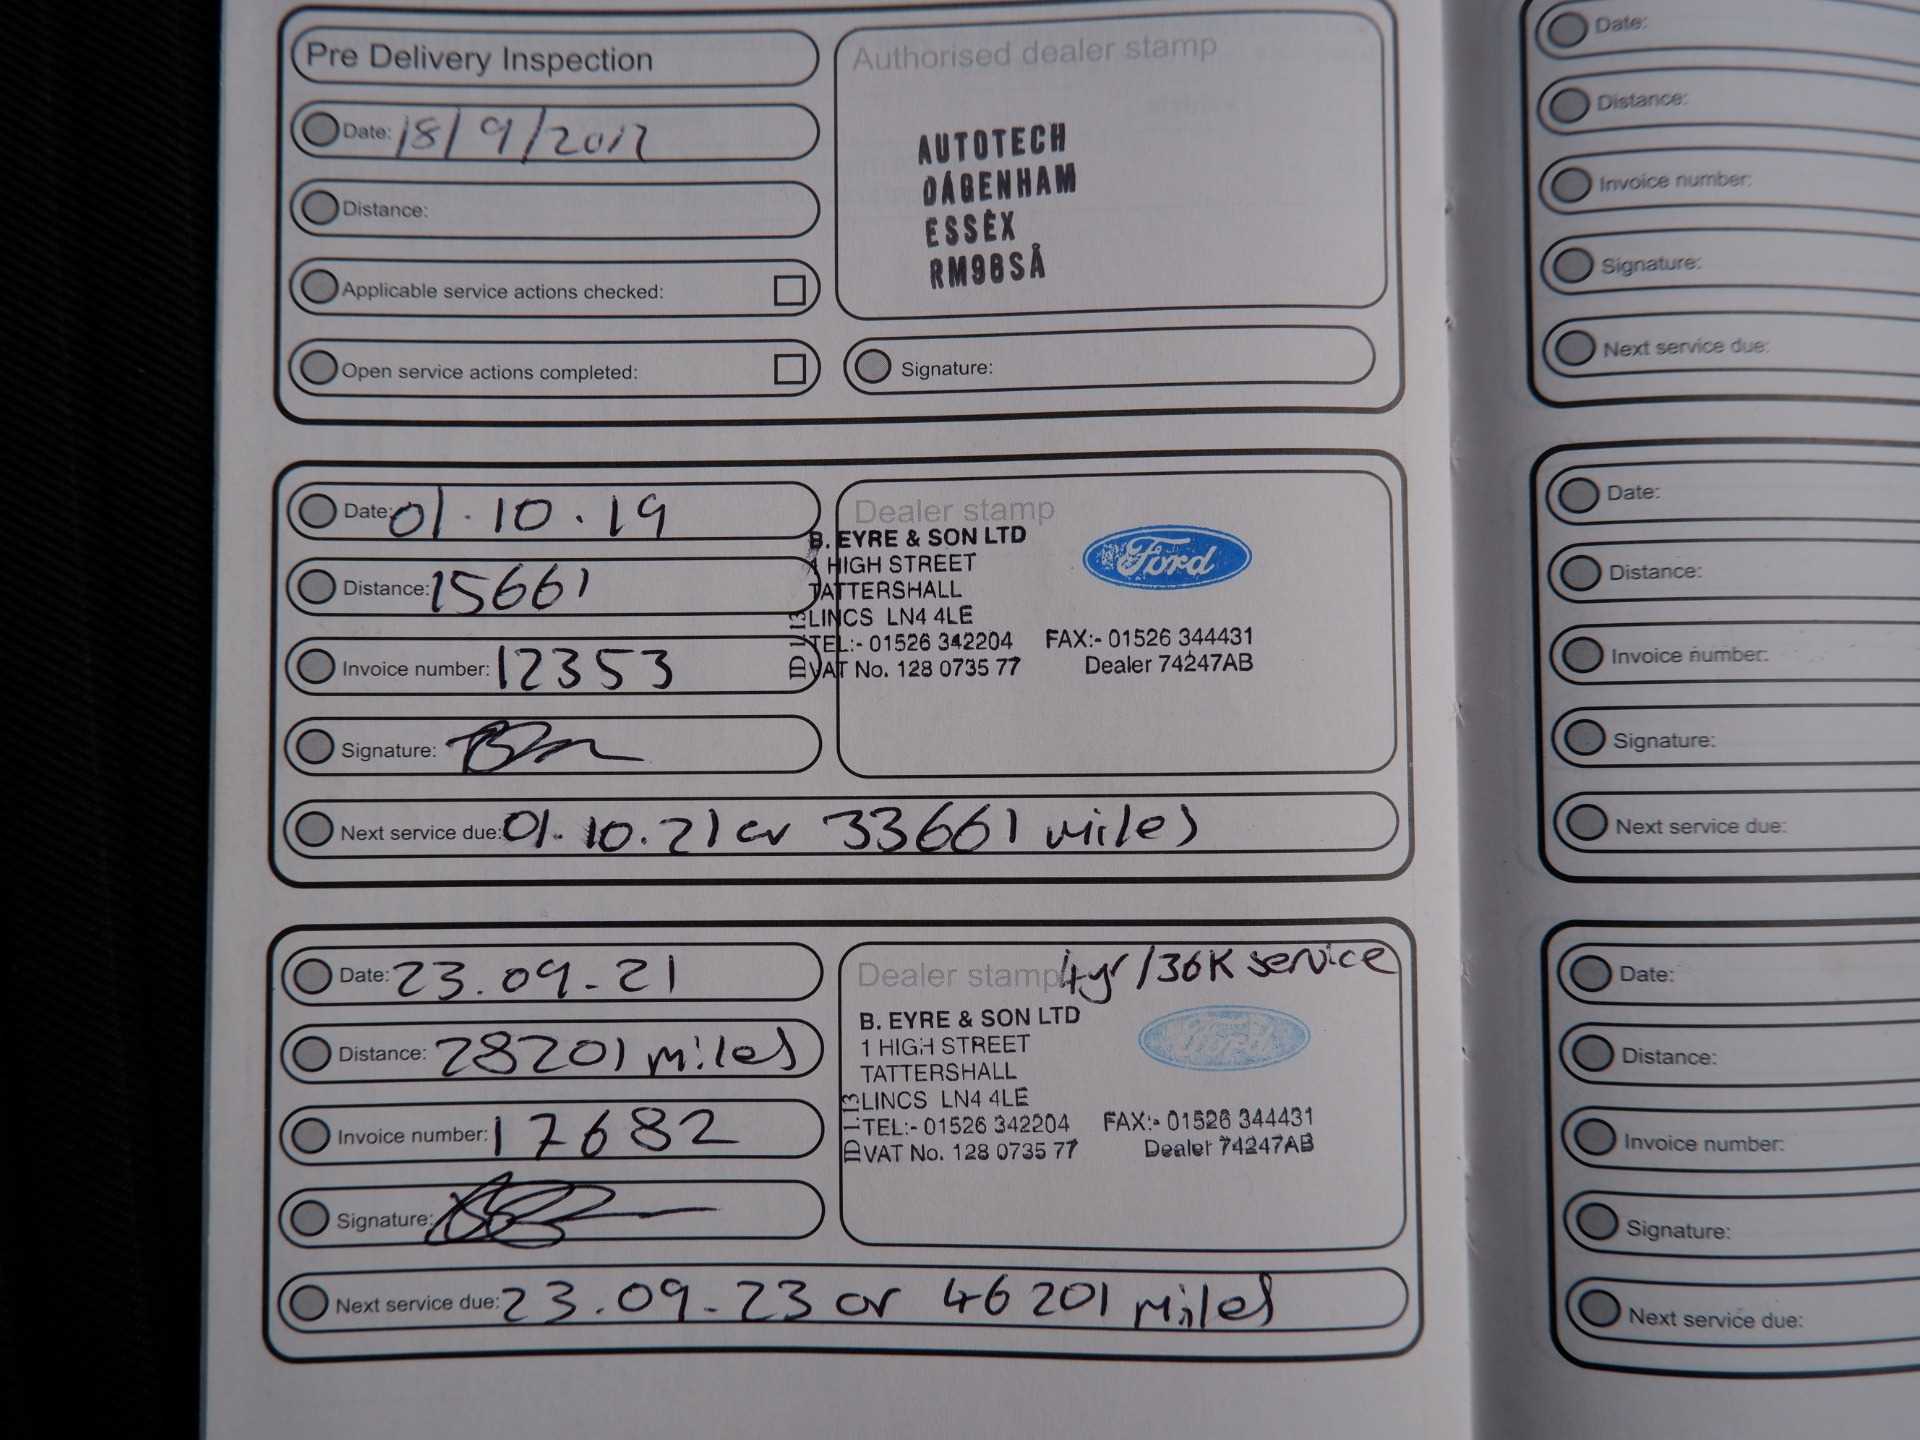 Pre Delivery Inspection
Date: 18/9/2017
Distance:
Applicable service actions checked:
Open service actions completed:
Authorised dealer stamp
AUTOTECH
DAGENHAM
ESSEX
RM96SA
Signature:
Date: 01.10.19
Distance: 15661
Invoice number: 12353
Signature:
Next service due: 01.10.21 or 33661 miles
Dealer stamp
B. EYRE & SON LTD
1 HIGH STREET
TATTERSHALL
LINCS LN4 4LE
TEL:- 01526 342204 FAX:- 01526 344431
VAT No. 128 0735 77 Dealer 74247AB
ID 1.13
Ford
Date: 23.09.21
Distance: 28201 miles
Invoice number: 17682
Signature:
Next service due: 23.09.23 or 46201 miles
Dealer stamp 4yr/36K service
B. EYRE & SON LTD
1 HIGH STREET
TATTERSHALL
LINCS LN4 4LE
TEL:- 01526 342204 FAX:- 01526 344431
VAT No. 128 0735 77 Dealer 74247AB
ID 1.13
Ford
Date:
Distance:
Invoice number:
Signature:
Next service due:
Date:
Distance:
Invoice number:
Signature:
Next service due:
Date:
Distance:
Invoice number:
Signature:
Next service due: